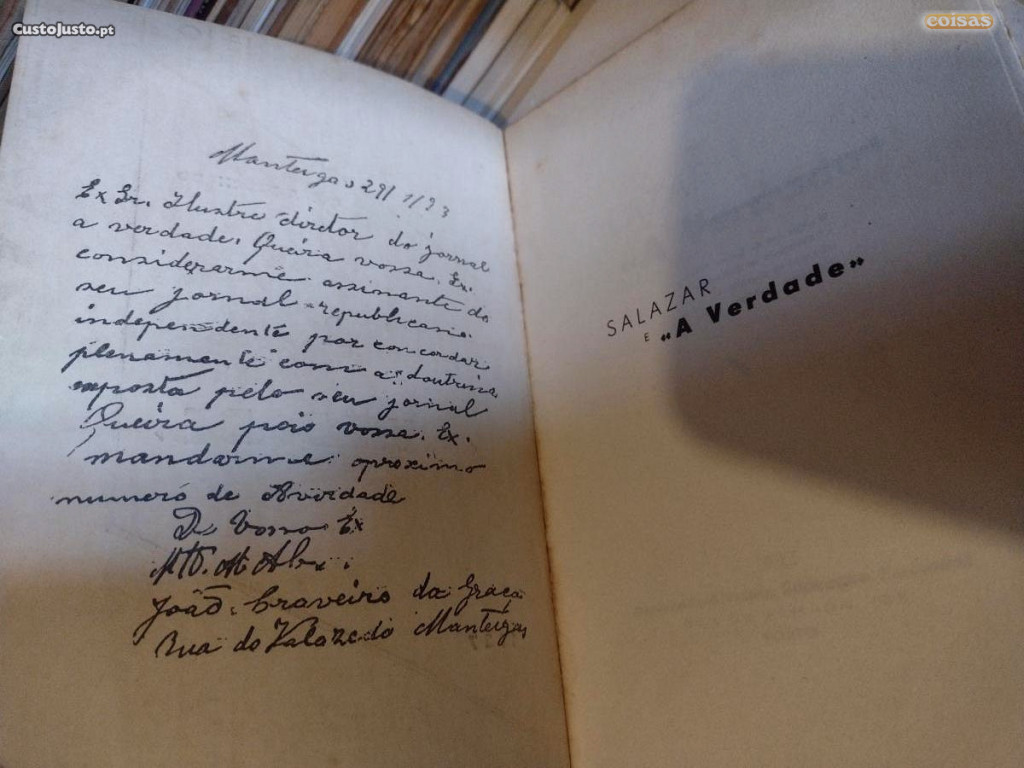 CustoJusto.pt
coisas
Manteigas 29/1/93
Ex Sr. Ilustre diretor do jornal
a verdade. Queira vossa. Ex.
considerarme assinante do
seu jornal republicano
independente por concordar
plenamente com a doutrina
imposta pelo seu jornal
Queira pois vossa. Ex.
mandarme oproximo
numeró de Averdade
De Vossa Ex
João Craveiro da Graça
Rua do Manteigas
SALAZAR
E «A Verdade»